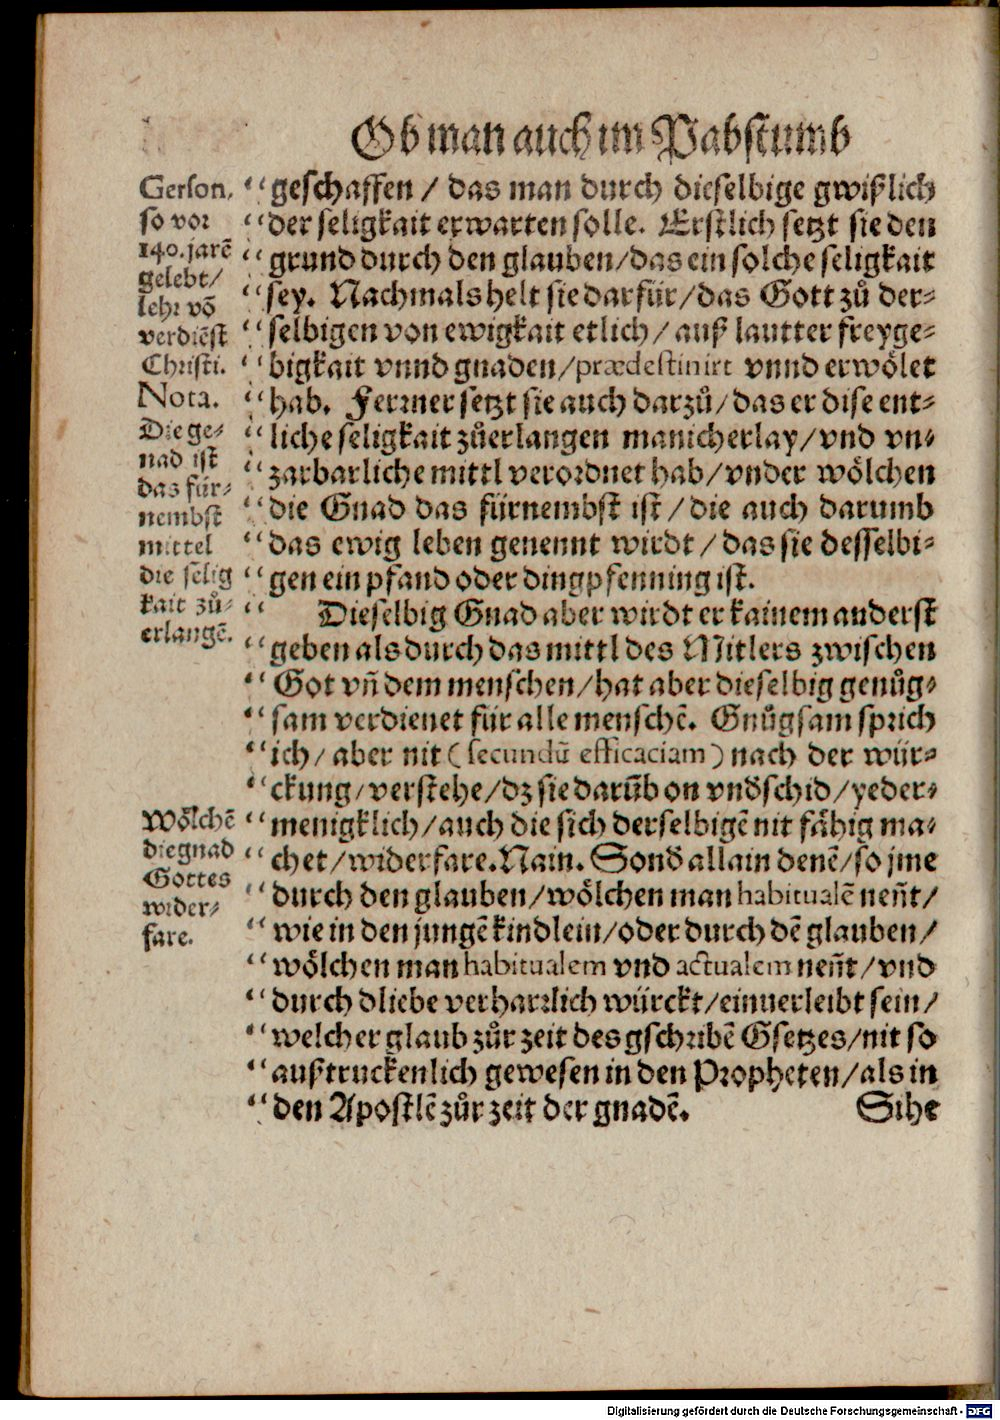 Ob man auch im Pabstumb
Gerson,
so vor
140. jarē
gelebt/
lehr võ
verdiēst
Christi.
Nota.
Die ge-
nad ist
das für-
nembst
mittel
die selig
kait zů-
erlangē.
Wölchē
die gnad
Gottes
wider-
fare.
“geschaffen / das man durch dieselbige gwißlich
“der seligkait erwarten solle. Erstlich setzt sie den
“grund durch den glauben/das ein solche seligkait
“sey. Nachmals helt sie darfür/das Gott zů der-
“selbigen von ewigkait etlich/ auß lautter freyge-
“bigkait vnnd gnaden/prædestinirt vnnd erwölet
“hab. Ferrner setzt sie auch darzů/das er dise ent-
“liche seligkait zůerlangen manicherlay/vnd vn-
“zarbarliche mittl verordnet hab/vnder wölchen
“die Gnad das fürnembst ist/die auch darumb
“das ewig leben genennt wirdt/das sie desselbi-
“gen ein pfand oder dingpfenning ist.
“Dieselbig Gnad aber wirdt er kainem anderst
“geben als durch das mittl des Mitlers zwischen
“Got vñ dem menschen/hat aber dieselbig genůg-
“sam verdienet für alle menschē. Gnůgsam sprich
“ich/aber nit (secundū efficaciam) nach der wür-
“ckung/verstehe/dz sie darūb on vnd̄schid/yeder-
“menigklich/auch die sich derselbigē nit fähig ma-
“chet/widerfare. Nain. Sond̄ allain denē/so jme
“durch den glauben/wölchen man habitualē neñt/
“wie in den jungē kindlein/oder durch dē glauben/
“wölchen man habitualem vnd actualem neñt/vnd
“durch dliebe verharrlich würckt/einuerleibt sein/
“welcher glaub zůr zeit des gschribē Gsetzes/nit so
“außtruckenlich gewesen in den Propheten/als in
“den Apostlē zůr zeit der gnadē.
Sihe
Digitalisierung gefördert durch die Deutsche Forschungsgemeinschaft - DFG